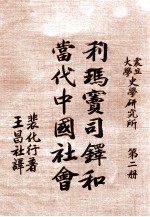 震旦大學史學研究所 第二册
利瑪竇司鐸和
當代中國社會
裴化行著
王昌社譯